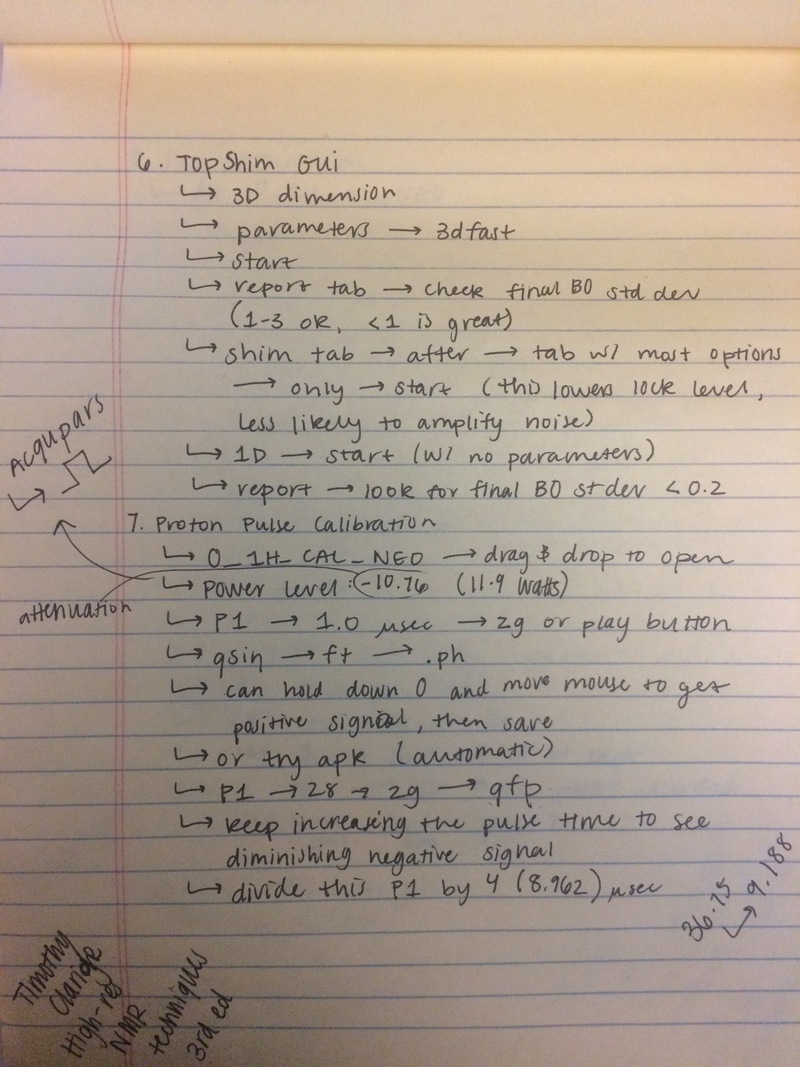 6. TopShim GUI
↳ 3D dimension
↳ parameters → 3dfast
↳ start
↳ report tab → check final B0 std dev
(1-3 ok, <1 is great)
↳ shim tab → after → tab w/ most options
→ only → start (this lowers lock level,
less likely to amplify noise)
↳ 1D → start (w/ no parameters)
↳ report → look for final B0 st dev < 0.2
Acqupars
↳
7. Proton Pulse Calibration
↳ 0_1H_CAL_NEO → drag & drop to open
↳ power level: -10.76 (11.9 watts)
attenuation
↳ P1 → 1.0 μsec → zg or play button
↳ qsin → ft → .ph
↳ can hold down 0 and move mouse to get
positive signal, then save
↳ or try apk (automatic)
↳ P1 → 28 → zg → qfp
↳ keep increasing the pulse time to see
diminishing negative signal
↳ divide this P1 by 4 (8.962) μsec
36.75
↳ 9.188
Timothy
Claridge
High-res
NMR
techniques
3rd ed